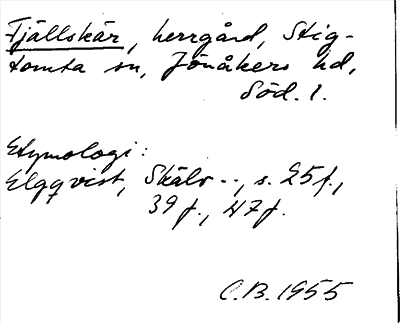 Fjällskär, herrgård, Stig-
tomta sn, Jönåkers hd,
Söd. l.
Etymologi:
Elgqvist, Skälv --, s. 25 f.,
39 f., 47 f.
C.B. 1955